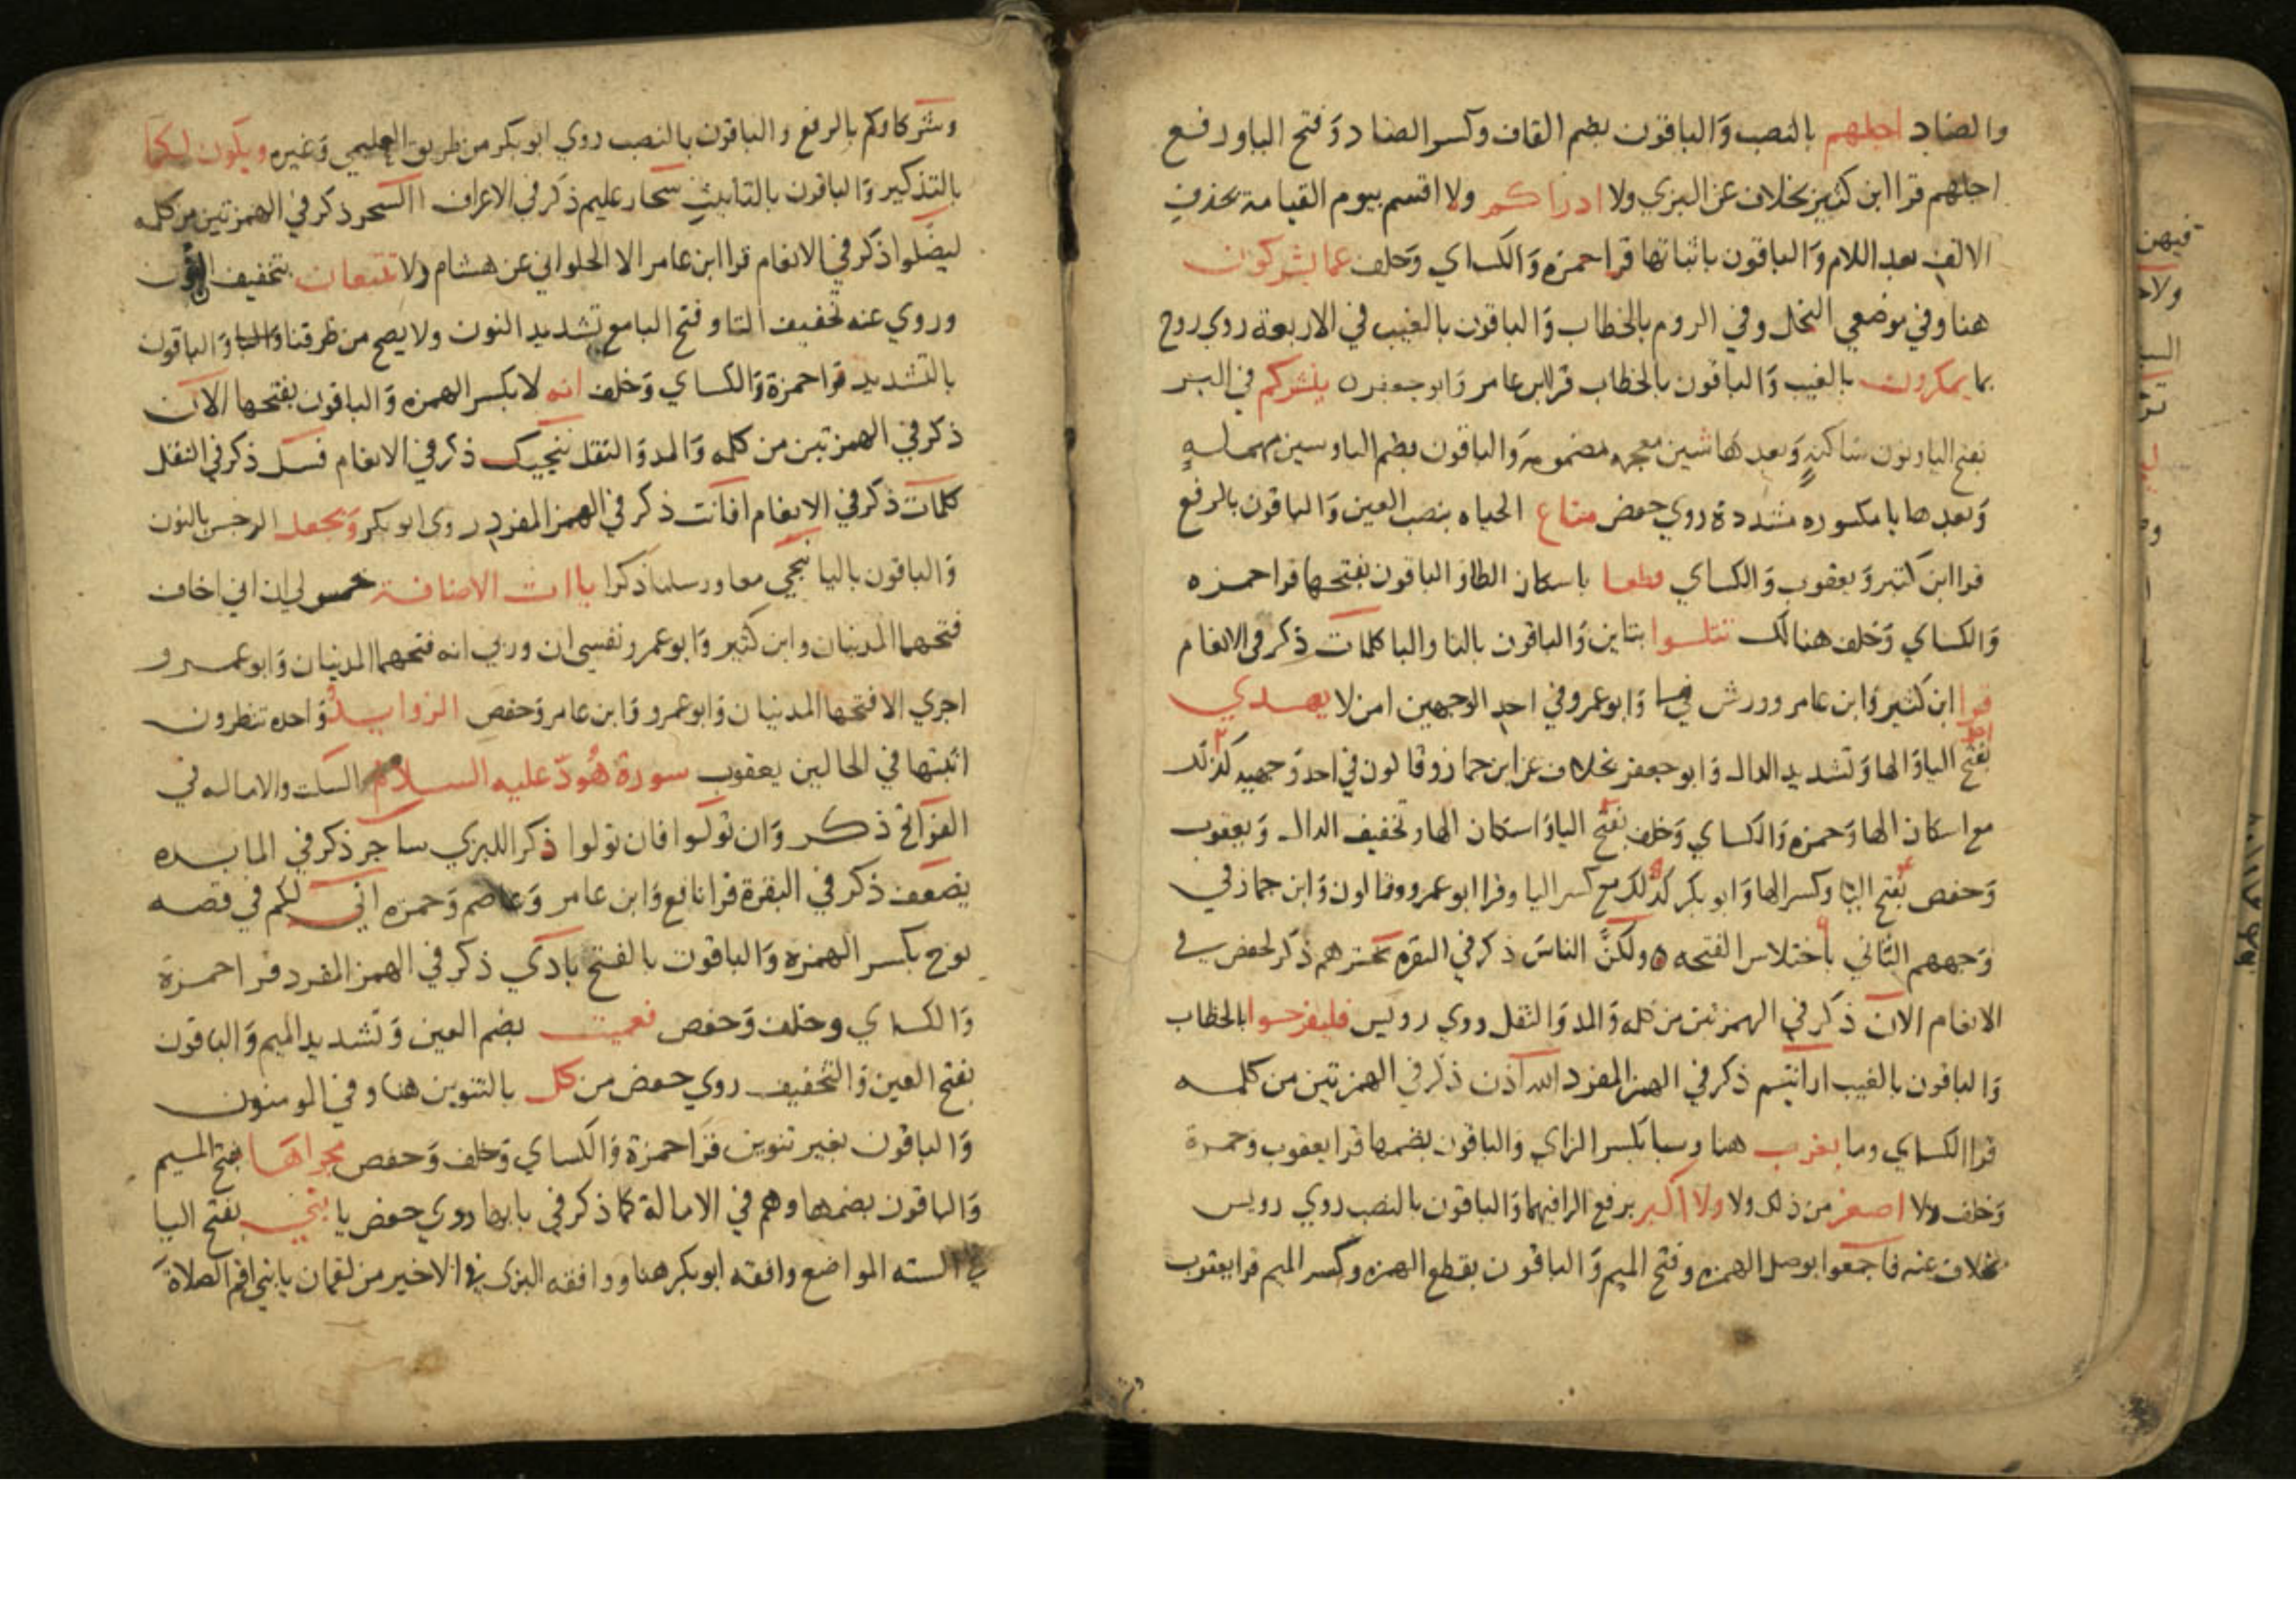 والضاد اجلهم بالنصب وَالباقون بضم القاف وكسر الضاد وَفتح الياورفع
اجلهم قرا ابن كثير بخلاف عن البزي ولا ادراكم ولا اقسم بيوم القيامة بحذف
الالف بعد اللام وَالباقون باثباتها قرا حمزه وَالكساي وَخلف عما يشركون
هنا وفي موضعي النحل وفي الروم بالخطاب وَالباقون بالغيب في الاربعة روي روح
بما يمكرون بالغيب وَالباقون بالخطاب قرا ابن عامر وَابو جعفر ينشركم في البر
بفتح الياونون ساكنةٍ وَبعدهَا شين معجمه مضمومه وَالباقون بضم الياوسين مهملهٍ
وَبعدها يا مكسوره مشددة روي حفص متاع الحياه بنصب العين وَالباقون بالرفع
قرا ابن كثير وَيعقوب وَالكساي قطعا باسكان الطاوَالباقون بفتحها قرا حمزه
وَالكساي وَخلف هنالك تتلوا بتاين وَالباقون بالتا والبا كلمات ذكر في الانعام
قرا ابن كثير وَابن عامر وورش وَابو عمرو في احد الوجهين امن لا يهدي
بفتح الياوَالهاوَتشديد الدال وَابو جعفر بخلاف عن ابن جماز وقالون في احد وَجهيه كذلك
مع اسكان الهاوَحمزه وَالكساي وَخلف بفتح الياوَاسكان الهاوتخفيف الدال وَيعقوب
وَحفص بفتح اليا وكسر الهاوَابو بكر كذلك مع كسر اليا وقرا ابو عمرو وقالون وَابن جماز في
وَجههم الثاني باختلاس الفتحه ولكنّ الناسَ ذكر في البقره نحشرهم ذكر لحفص في
الانعام الآن ذكر في الهمزتين من كلمه وَالمد وَالنقل روي رويس فليفرحوا بالخطاب
وَالباقون بالغيب ارايتم ذكر في الهمز المفرد الله آذن ذكر في الهمزتين من كلمه
قرا الكساي وما يعزب هنا وسبا بكسر الزاي وَالباقون بضمها قرا يعقوب وَحمزة
وَخلف ولا اصغر من ذلك ولا ولا اكبر برفع الرا فيهما وَالباقون بالنصب روي رويس
بخلاف عنه فاجمعوا بوصل الهمزه وفتح الميم وَالباقون بقطع الهمزه وكسر الميم قرا يعقوب
وشركاوكم بالرفع والباقون بالنصب روي ابو بكر من طريق العليمي وَغيره ويكون لكما
بالتذكير وَالباقون بالتانيث سحار عليم ذكر في الاعراف االسحر ذكر في الهمزتين من كلمه
ليضلوا ذكر في الانعام قرا ابن عامر الا الحلواني عن هشام ولا تتبعان بتخفيف النون
وروي عنه تخفيف التا وفتح البا مع تشديد النون ولا يصح من طرقنا وَالباقون
بالتشديد قرا حمزة وَالكساي وَخلف انه لا بكسر الهمزه وَالباقون بفتحها الآن
ذكر في الهمزتين من كلمه وَالمد وَالنقل ننجيك ذكر في الانعام فسل ذكر في النقل
كلمات ذكر في الانعام افانت ذكر في الهمز المفرد روى ابو بكر وَنجعل الرجس بالنون
وَالباقون باليا ننجي معا ورسلنا ذكرا ياات الاضافة خمس لي ان اني اخاف
فتحهما المدنيان وابن كثير وَابو عمرو نفسي ان وربي انه فتحهما المدنيان وَابو عمرو
اجري الا فتحها المدنيان وَابو عمرو وَابن عامر وَحفص الزوايد وَاحده تنظرون
اثبتها في الحالين يعقوب سورة هُودّ عليه السلام السكت والاماله في
الفواتح ذكر وَان تولوا فان تولوا ذكرا للبزي ساحر ذكر في المايده
يضعف ذكر في البقرة قرا نافع وَابن عامر وَعاصم وَحمزه اني لكم في قصه
نوح بكسر الهمزه وَالباقون بالفتح بادَي ذكر في الهمز المفرد قرا حمزة
وَالكساي وخلف وَحفص فعميت بضم العين وَتشديد الميم وَالباقون
بفتح العين وَالتخفيف روي حفص من كل بالتنوين هنا وفي المومنون
وَالباقون بغير تنوين قرا حمزة وَالكساي وَخلف وَحفص مجراها بفتح الميم
وَالباقون بضمها وهم في الامالة كما ذكر في بابها روي حفص يا بني بفتح اليا
في السته المواضع وافقه ابو بكر هنا ووافقه البزي في الاخير من لقمان يا بني اقم الصلاة